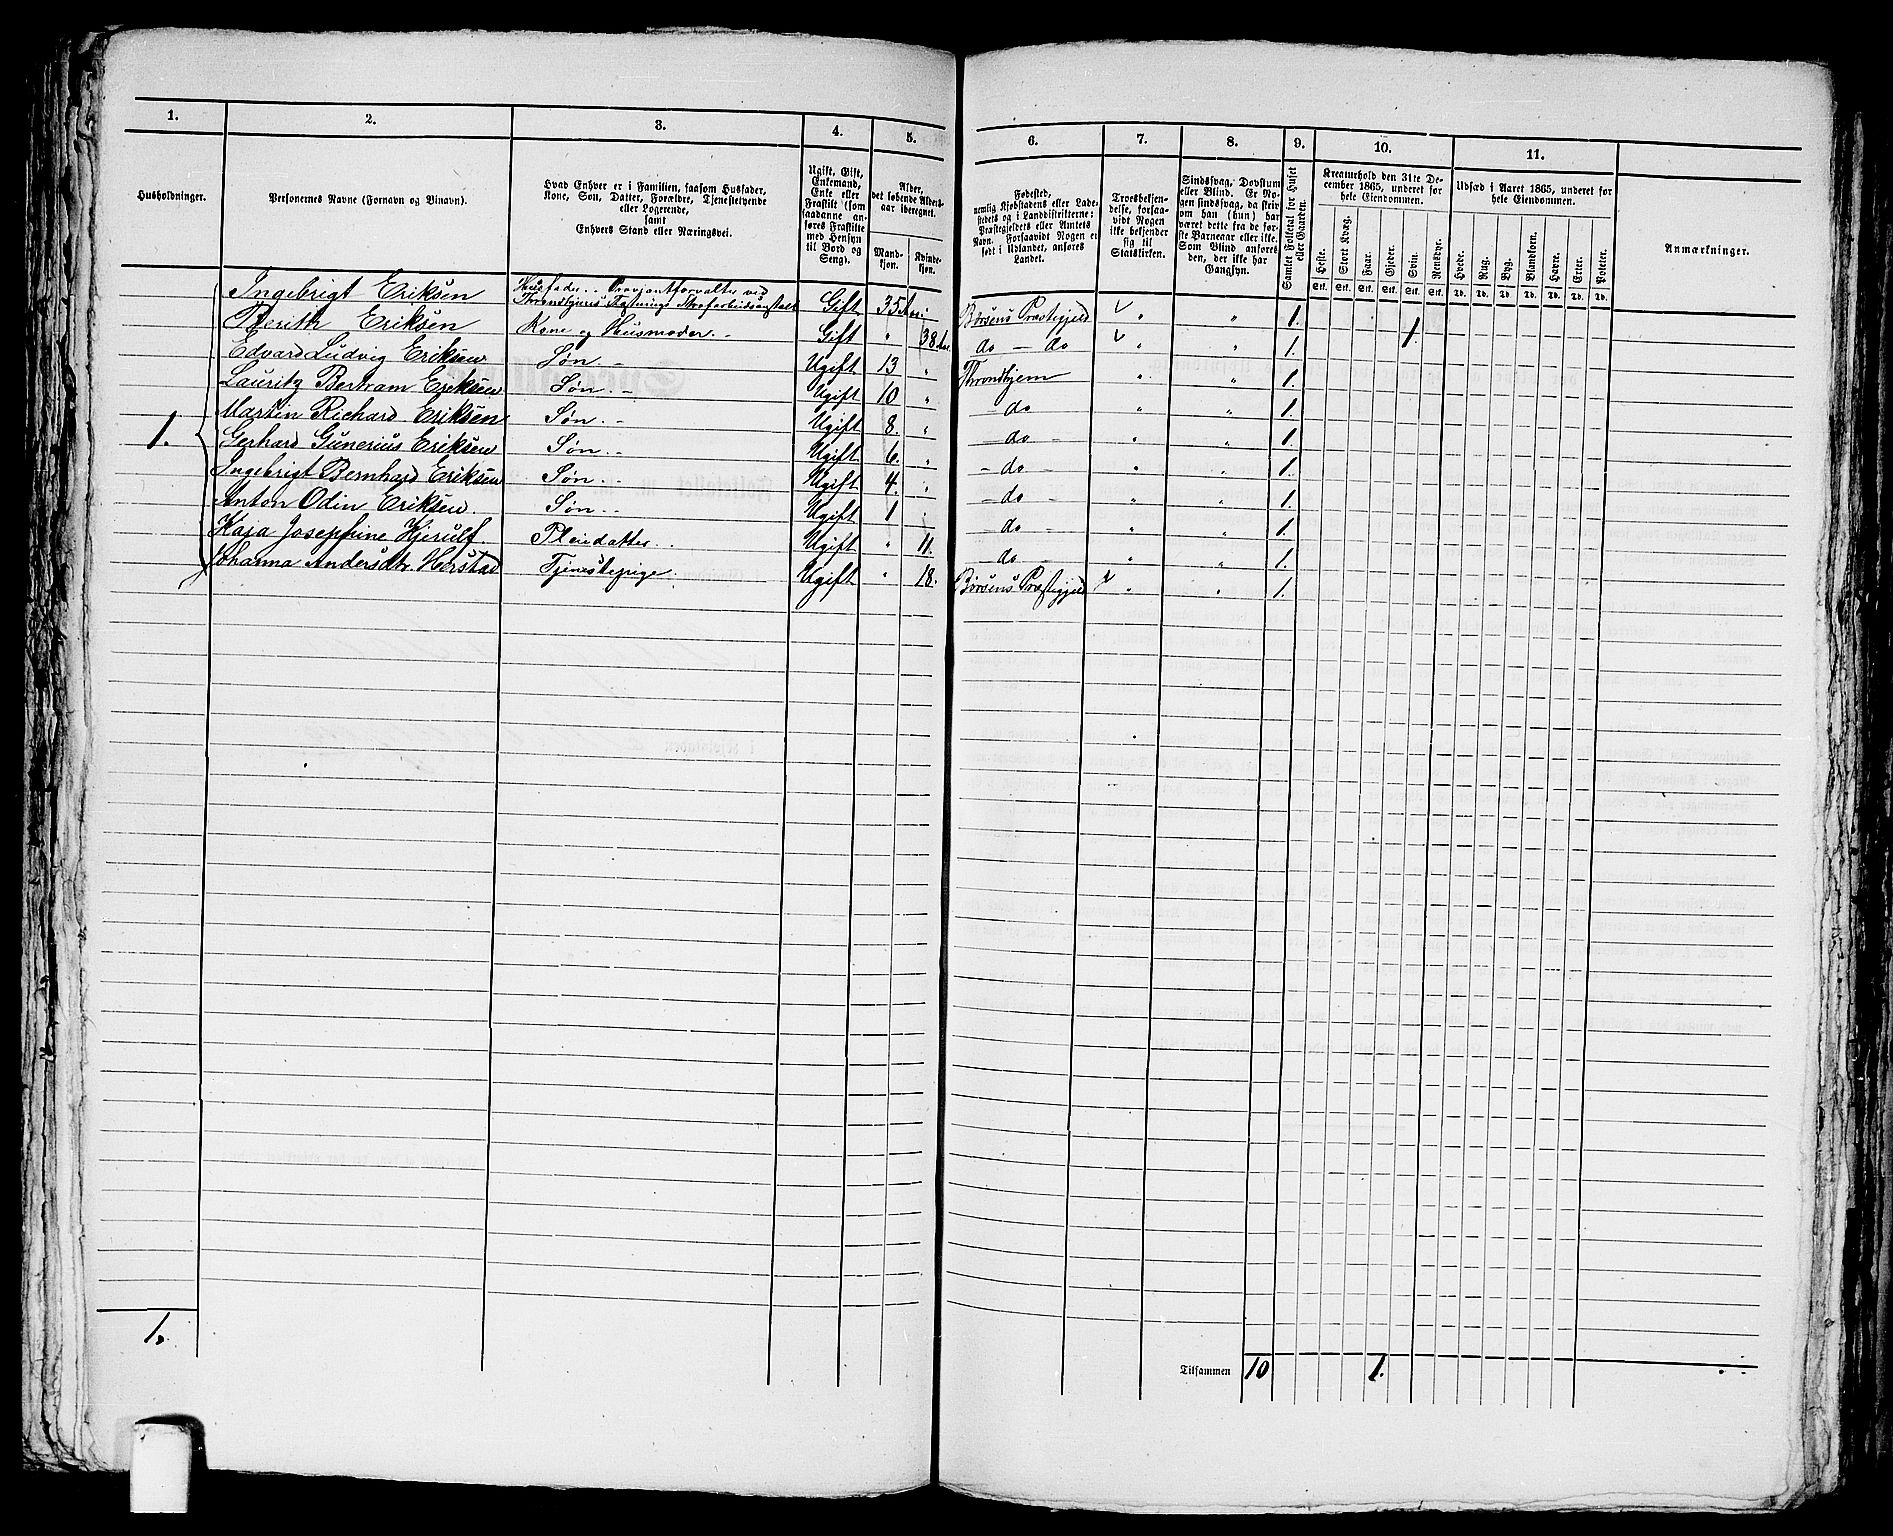 1. 2. 3. 4. 5. 6. 7. 8. 9. 10. 11.
Husholdninger.
Personernes Navne (Fornavn og Binavn).
Hvad Enhver er i Familien, saasom Husfader,
Kone, Søn, Datter, Forældre, Tjenestetyende
eller Logerende,
samt
Enhvers Stand eller Næringsvei.
Ugift, Gift,
Enkemand,
Enke eller
Fraskilt (som
saadanne an-
føres Fraskilte
med Hensyn
til Bord og
Seng).
Alder,
det løbende Alders-
aar iberegnet.
Mand-
kjøn.
Kvinde-
kjøn.
Fødested,
nemlig Kjøbstadens eller Lade-
stedets og i Landdistrikterne:
Præstegjeldets eller Amtets
Navn. Forsaavidt Nogen er
født i Udlandet, anføres
Landet.
Troesbekjen-
delse, forsaa-
vidt Nogen
ikke bekjender
sig til
Statskirken.
Sindssvag, Døvstum
eller Blind. Er No-
gen sindssvag, da skriv
om han (hun) har
været dette fra de før-
ste Barneaar eller ikke.
Som Blind anføres
den, der ikke har
Gangsyn.
Samlet Folketal for Huset
eller Gaarden.
Kreaturhold den 31te De-
cember 1865, underet for
hele Eiendommen.
Heste. Stort Kvæg. Faar. Gjeder. Svin. Rensdyr.
Stk. Stk. Stk. Stk. Stk. Stk.
Udsæd i Aaret 1865, underet for
hele Eiendommen.
Hvede. Rug. Byg. Blandkorn. Havre. Erter. Poteter.
Td. Td. Td. Td. Td. Td. Td.
Anmærkninger.
1.
Ingebrigt Eriksen Husfader. Proviantforvalter ved Throndhjems Tugtnings Strafarbeidsanstalt Gift 35 Aar Børsens Præstegjeld " " 1.
Berith Eriksen Kone og Husmoder. Gift " 38 Aar do - do " " 1. 1.
Edvard Ludvig Eriksen Søn. Ugift 13 " Throndhjem " " 1.
Lauritz Bertram Eriksen Søn. Ugift 10 " do " " 1.
Martin Richard Eriksen Søn. Ugift 8. " do " " 1.
Gerhard Gunerius Eriksen Søn. Ugift 6. " do " " 1.
Ingebrigt Bernhard Eriksen Søn. Ugift 4. " do " " 1.
Anton Odin Eriksen. Søn. Ugift 1 " do " " 1.
Kaja Josephine Hjerulf Pleiedatter. Ugift " 11. do " " 1.
Johanna Andersdtr. Herstad Tjenestepige. Ugift " 18. Børsens Præstegjeld " " 1.
1.
Tilsammen 10 1.